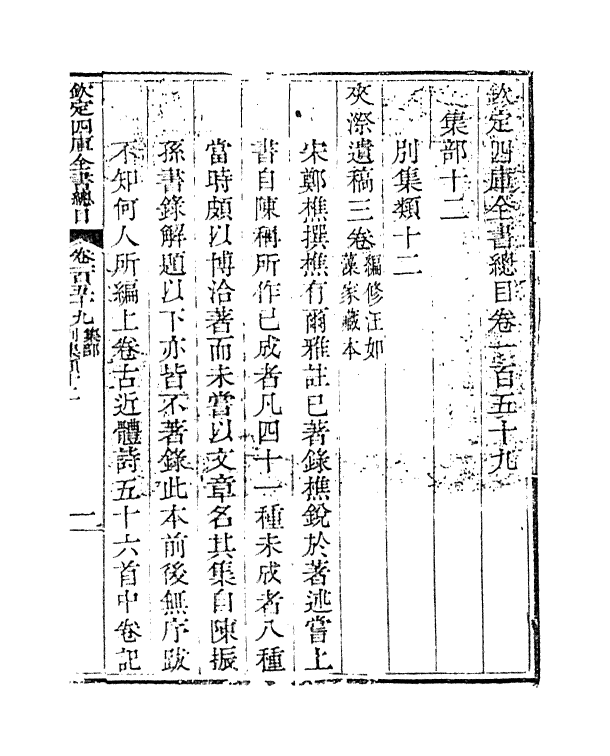 欽定四庫全書總目卷一百五十九
集部十二
別集類十二
夾漈遺稿三卷編修汪如藻家藏本
宋鄭樵撰樵有爾雅註已著錄樵銳於著述嘗上
書自陳稱所作已成者凡四十一種未成者八種
當時頗以博洽著而未嘗以文章名其集自陳振
孫書錄解題以下亦皆不著錄此本前後無序跋
不知何人所編上卷古近體詩五十六首中卷記
欽定四庫全書總目
卷一百五十九
集部
別集類十二
一